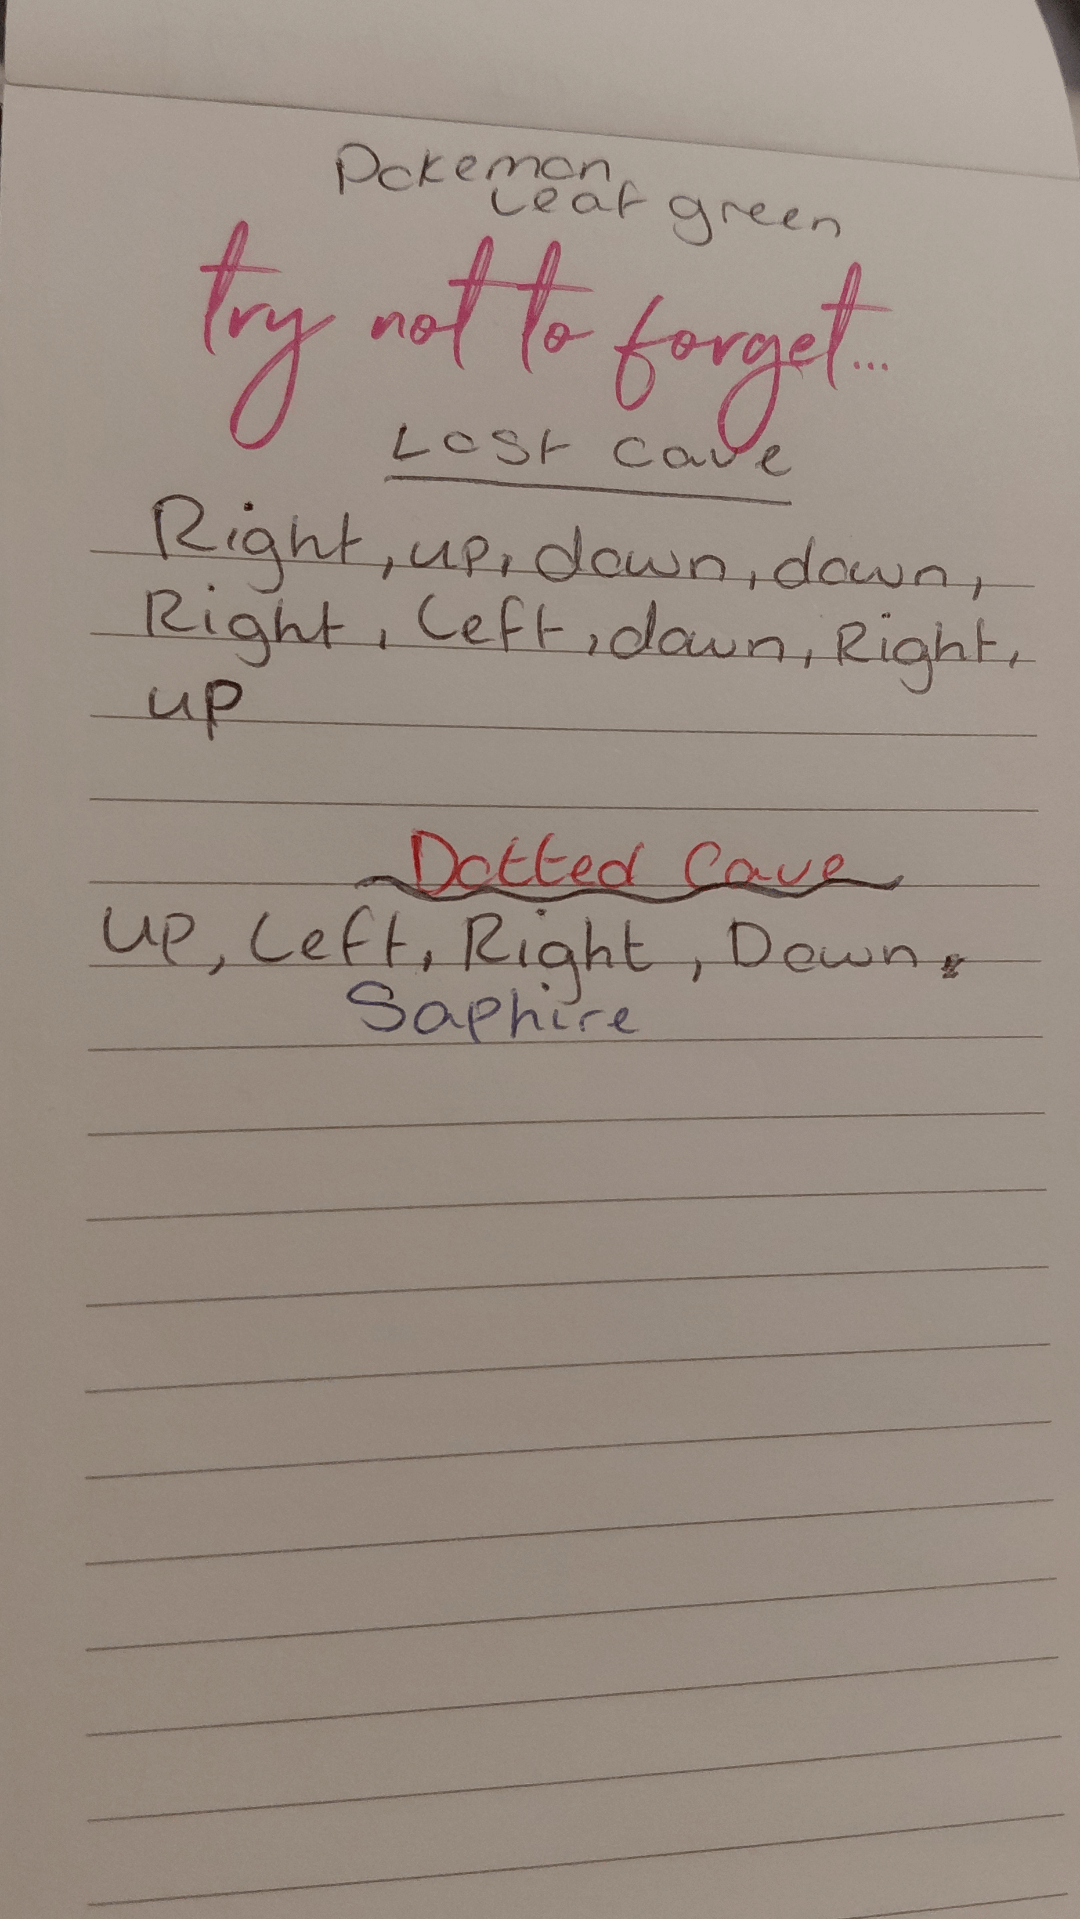 Pokemon
Leaf green
try not to forget...
Lost cave
Right, up, down, down,
Right, Left, down, Right,
up
Dotted Cave
Up, Left, Right, Down.
Saphire